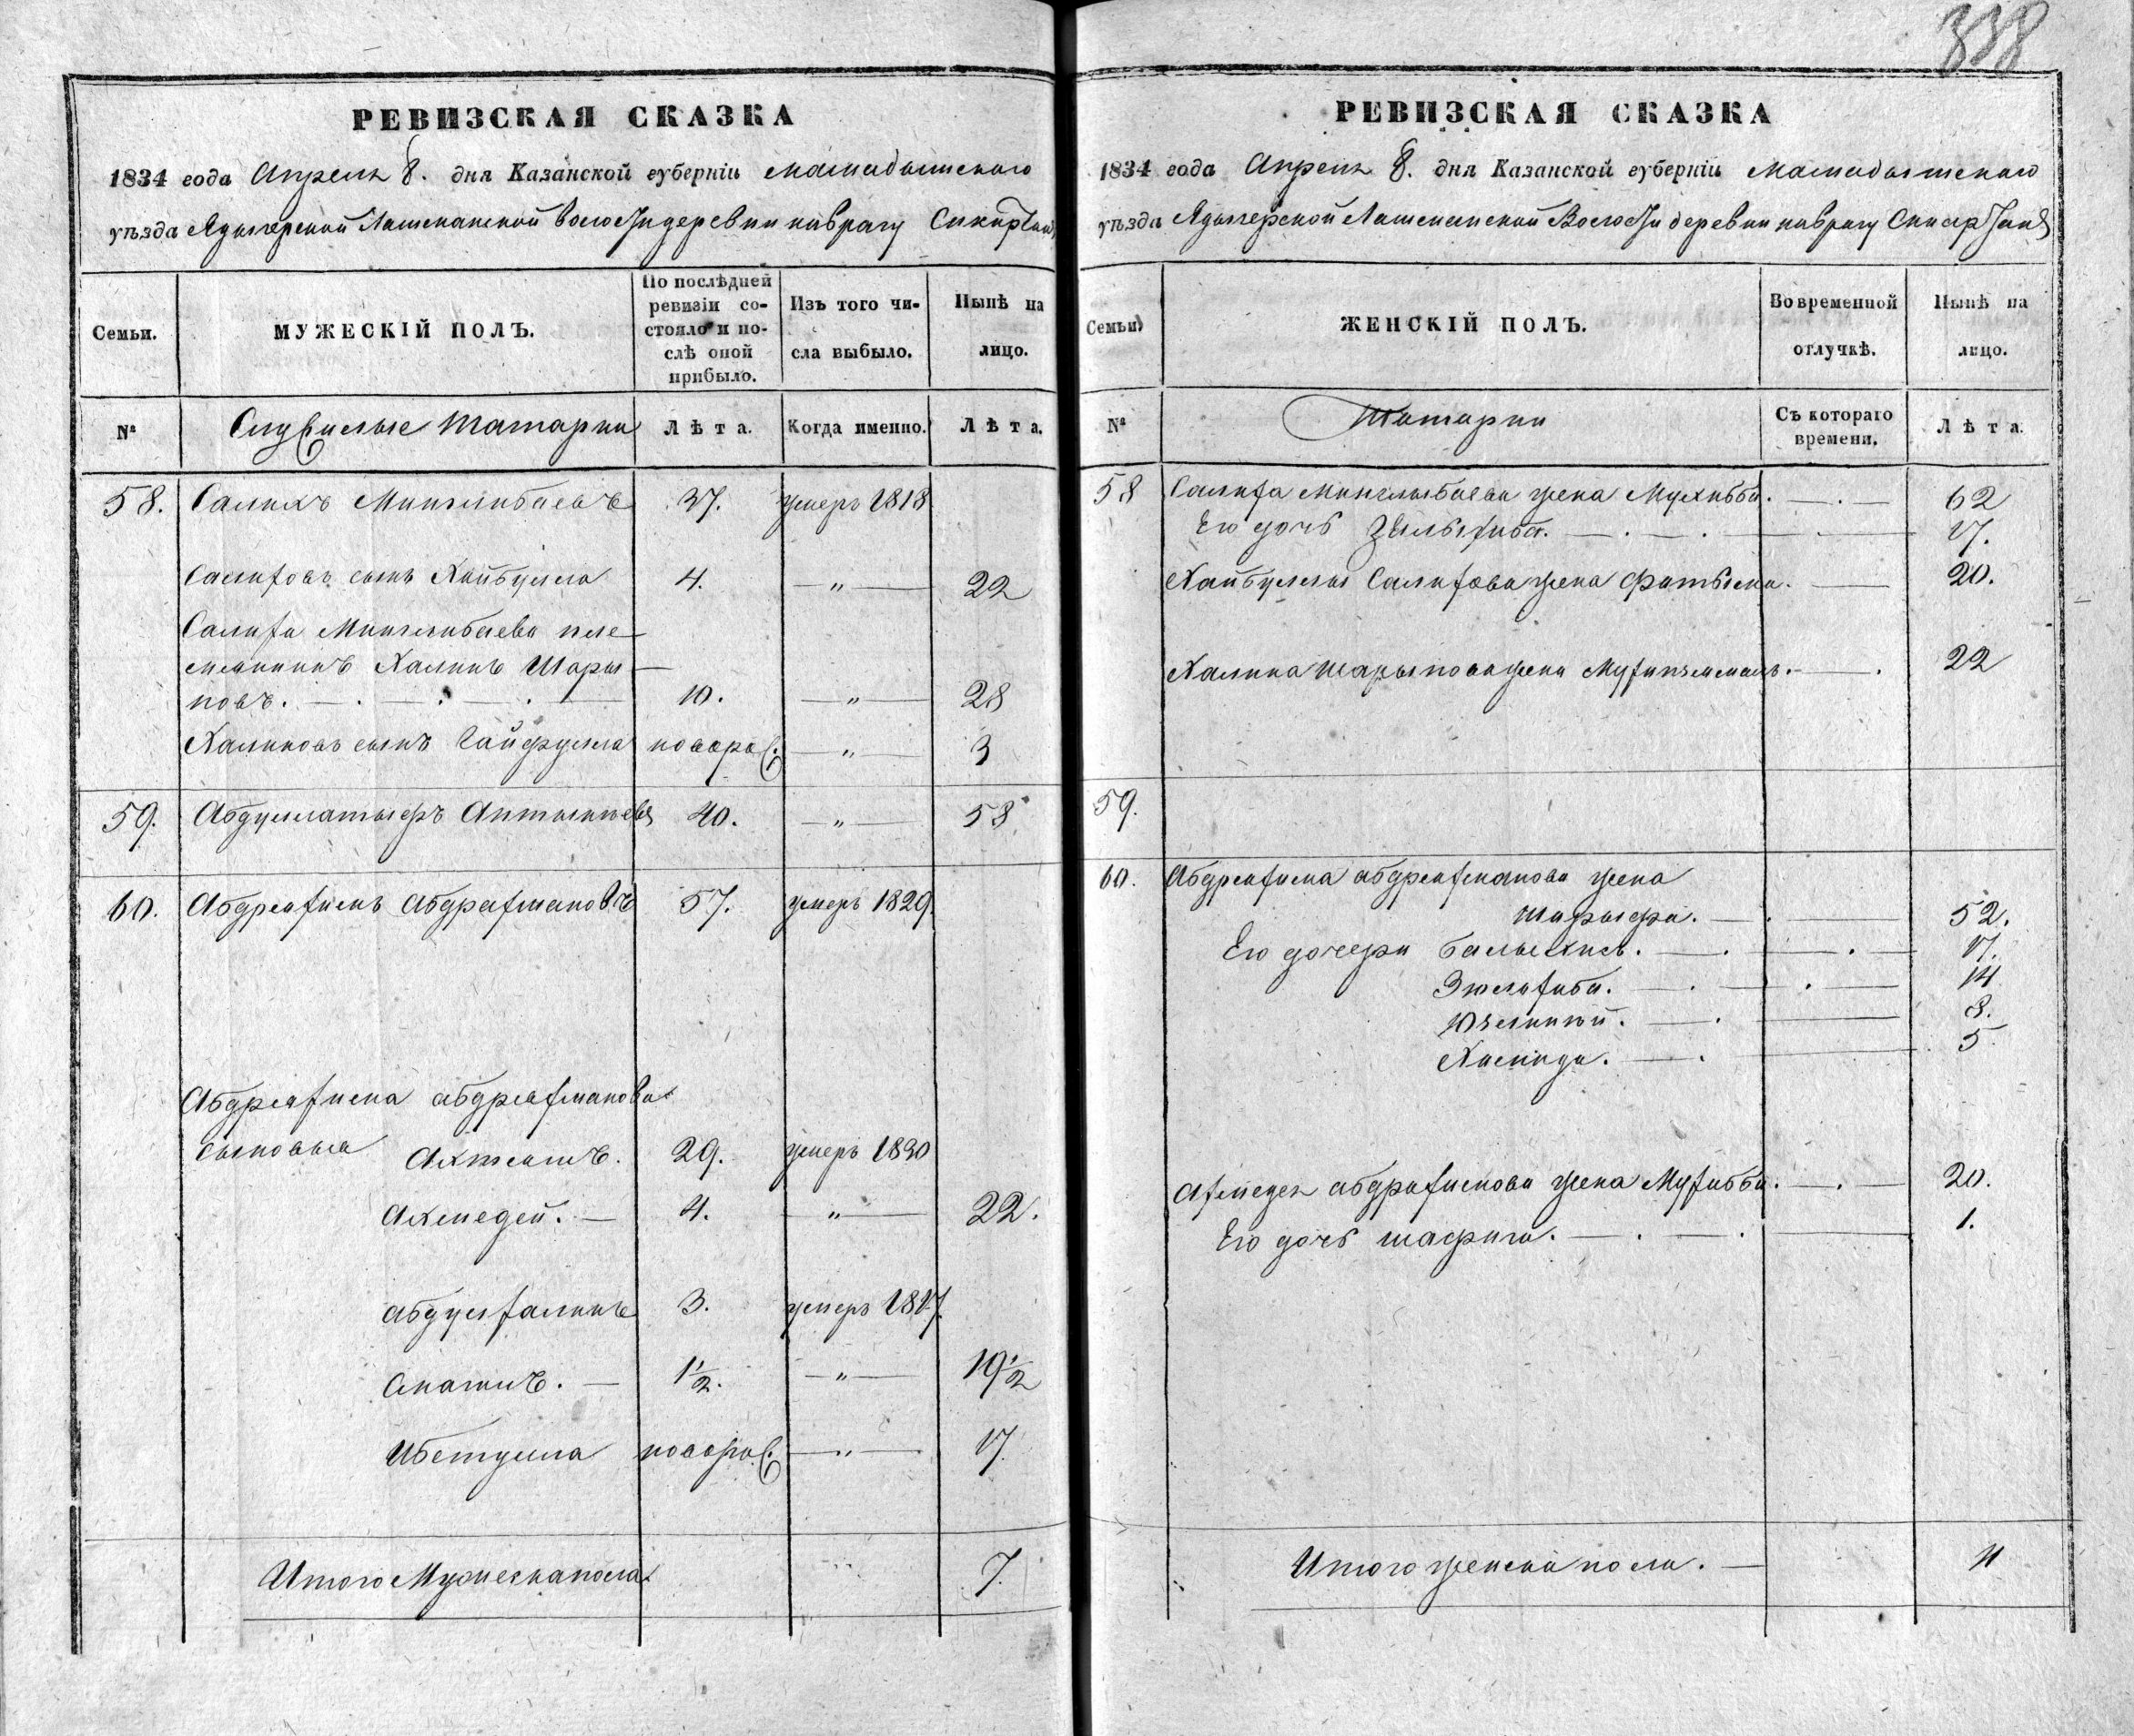 338
РЕВИЗСКАЯ СКАЗКА
1834 года Апреля 8. дня Казанской губерніи Мамадышскаго
уѣзда Ядыгерской Лашманской волости деревни
Семьи.
МУЖЕСКІЙ ПОЛЪ.
По послѣдней ревизіи со-
стояло и по-
слѣ оной
прибыло.
Изъ того чи-
сла выбыло.
Нынѣ на
лицо.
№
Служилые Татары
Лѣта.
Когда именно.
Лѣта.
58. Салихъ Минглибаевъ 37. умеръ 1818
Салиховъ сынъ Хайбулла 4. — " — 22
Салиха Минглибаева пле—
мянникъ Халикъ Шары—
повъ. 10. — " — 28
Халиковъ сынъ Сайфулла новорож. — " — 3
59. Абдуллатыфъ 40. — " — 58
60. Абдрахимъ Абдрахмановъ 57. умеръ 1829.
Абдрахима Абдрахманова
сыновья Ахтямъ. 29. умеръ 1830
Ахмедей. — 4. — " — 22.
Абдулхаликъ 3. умеръ 1817.
1½. — " — 19½
новорож. — " — 17.
Итого Мужеска пола 7.
РЕВИЗСКАЯ СКАЗКА
1834 года Апреля 8. дня Казанской губерніи Мамадышскаго
уѣзда Ядыгерской Лашманской Волости деревни
Семьи
ЖЕНСКІЙ ПОЛЪ.
Во временной
отлучкѣ.
Нынѣ на
лицо.
№
Татарки
Съ котораго
времени.
Лѣта.
58 Салиха Минглыбаева жена Мухибба. 62
Его дочь 17.
Хайбуллы Салихова жена 20.
Халика Шарыпова жена 22
59.
60. Абдрахима Абдрахманова жена
Шарыфа. 52.
Его дочери 17.
14
8.
Хамида. 5.
Ахмедея Абдрахимова жена Мухибба. 20.
Его дочь Шафига. 1.
Итого женска пола. — 11